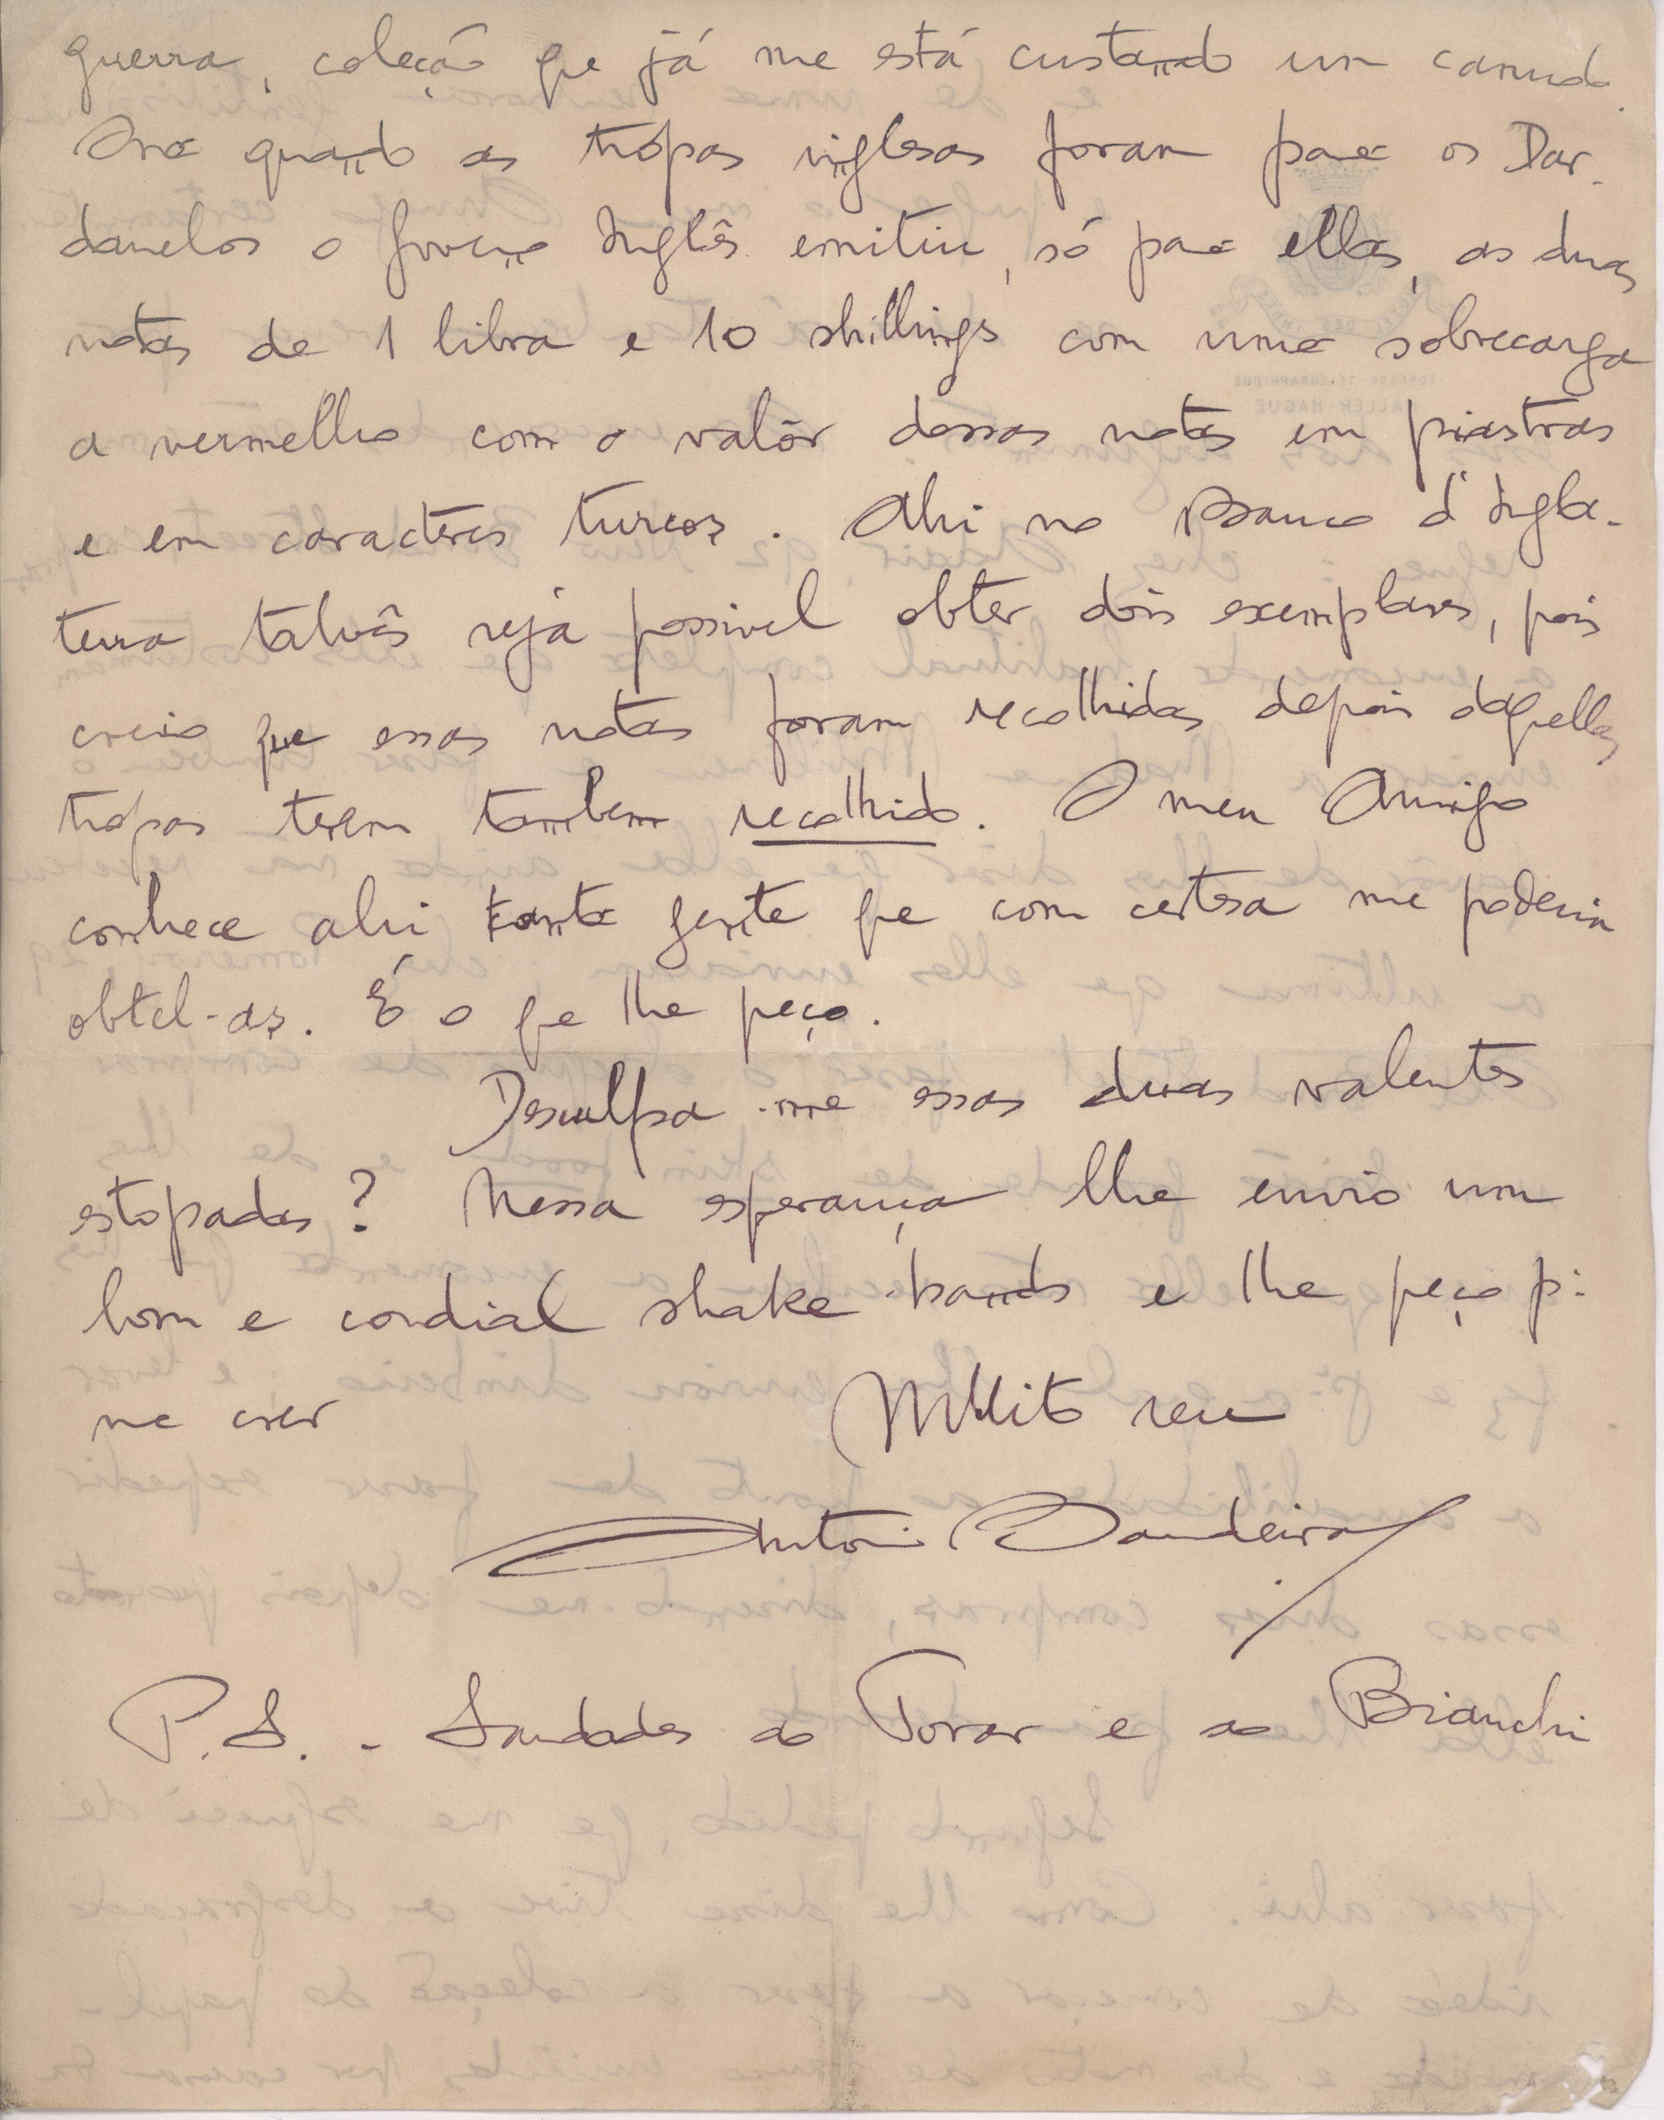 guerra, coleção que já me está custando um canudo.
Ora quando as trópas inglesas foram para os Dar-
danelos o governo Inglês emitiu, só para ellas, as duas
notas de 1 libra e 10 shillings com uma sobrecarga
a vermelho com o valôr dessas notas em piastras
e em caracteres turcos. Ahi no Banco d'Ingla-
terra talvês seja possivel obter dois exemplares, pois
creio que essas notas foram recolhidas depois daquellas
trópas terem tambem recolhido. O meu Amigo
conhece ahi tanta gente que com certesa me poderia
obtel-as. É o que lhe peço.
Desculpa-me essas duas valentes
estopadas? Nessa esperança lhe envio um
bom e cordial shake-hands e lhe peço p.ª
me crer
Mtto seu
Antonio Bandeira
P.S. - Saudades ao Tovar e ao Bianchi